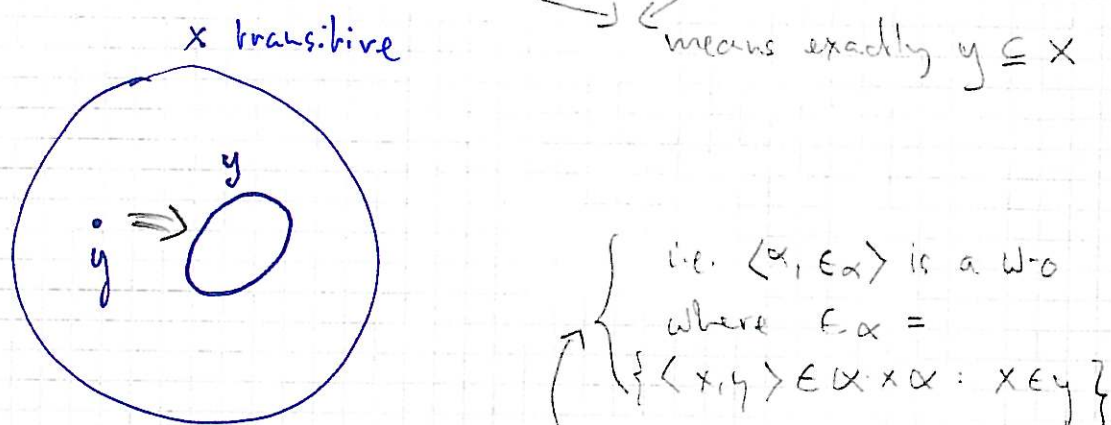 x transitive
means exactly y ⊆ x
y
ẏ ⇒
i.e. ⟨α, ∈α⟩ is a w-o
where ∈α =
{⟨x,y⟩ ∈ α×α : x∈y}